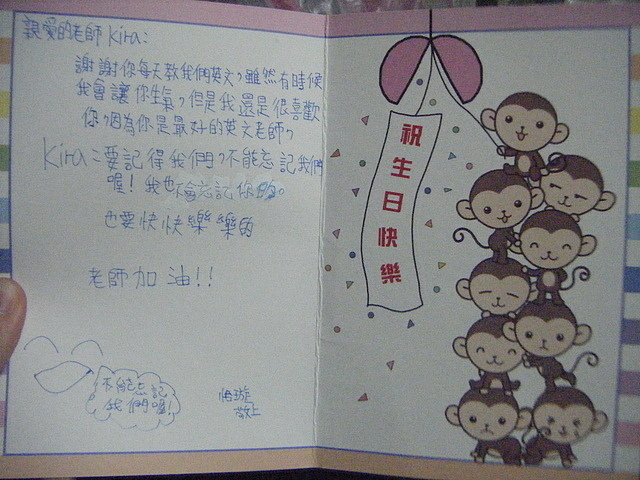 親愛的老師 Kira：
謝謝你每天教我們英文，雖然有時候
我會讓你生氣，但是我還是很喜歡
你，因為你是最好的英文老師，
Kira：要記得我們，不能忘記我們
喔！我也不會忘記你的。
也要快快樂樂的
老師加油！！
不能忘記
我們喔！
敬上
祝生日快樂